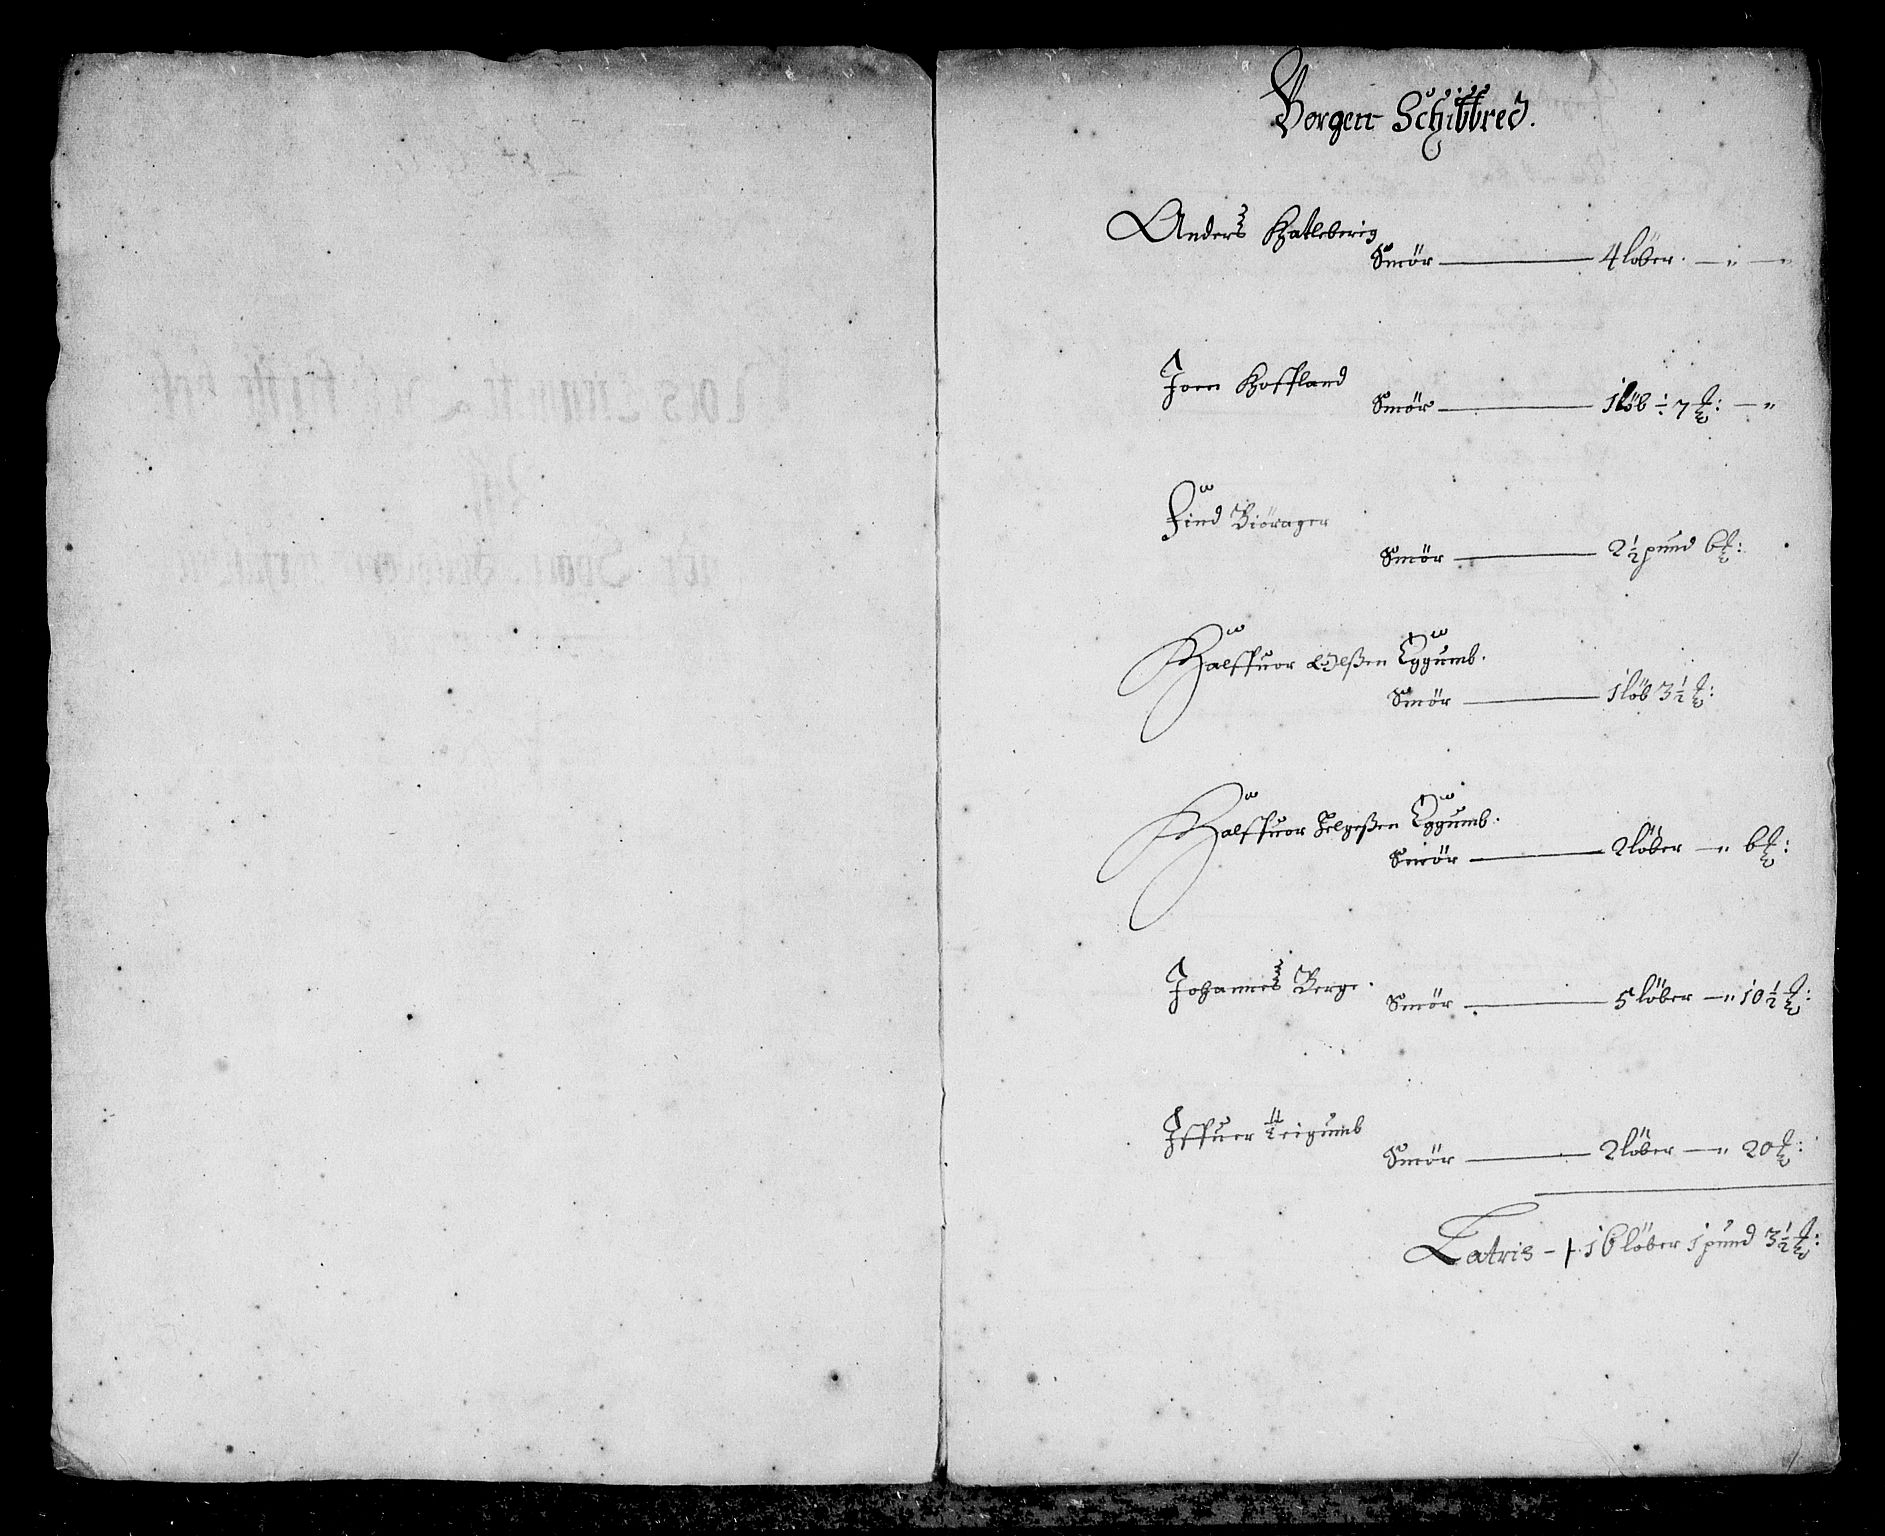 Borgen Schibbred.
Anders Hatleberig
Smör 4 löber. — " — "
Joen Hoffland
Smör 1 löb ÷ 7 ℔: — "
Find Biörager
Smör 2½ pund 6 ℔:
Halffuor Olßen Eggumb.
Smör 1 löb 3½ ℔:
Halffuor Helgeßen Eggumb.
Smör 2 löber — " 6 ℔:
Johannes Berge.
Smör 5 löber — " 10½ ℔:
Iffuer Teigumb
Smör 2 löber — " 20 ℔:
Latris - 16 löber 1 pund 3½ ℔: